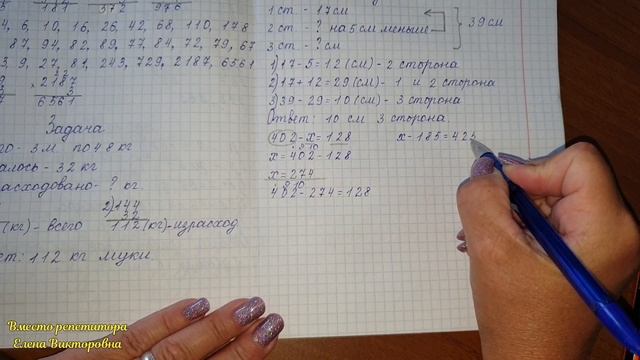 187 372 976
4, 6, 10, 16, 26, 42, 68, 110, 178
87, 94, 82, 89, 77, 84, 72, 79, 67
3, 9, 27, 81, 243, 729, 2187, 6561
× 2187
3
6561
Задача
3 м. по 48 кг
лось - 32 кг
расходовано - ? кг.
(кг) - всего 2) 144
32
112 (кг) - израсход
112 кг муки.
1 ст. - 17 см
2 ст. - ? на 5 см меньше
3 ст. - ? см
39 см
1) 17 - 5 = 12 (см) - 2 сторона
2) 17 + 12 = 29 (см) - 1 и 2 сторона
3) 39 - 29 = 10 (см) - 3 сторона
Ответ: 10 см 3 сторона.
402 - x = 128 x - 185 = 425
x = 402 - 128
x = 274
402 - 274 = 128
Вместо репетитора
Елена Викторовна